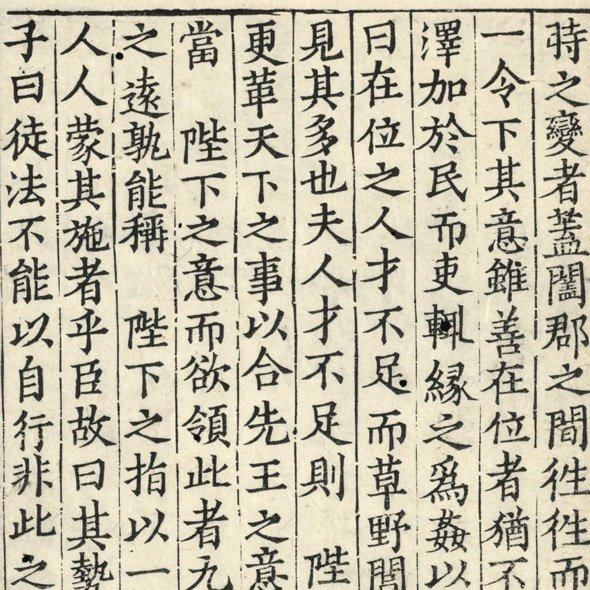 時之變者蓋闔郡之間徃徃而
一令下其意雖善在位者猶不
澤加於民而吏輙縁之爲姦以
曰在位之人才不足而草野閭
見其多也夫人才不足則　陛
更革天下之事以合先王之意
當　陛下之意而欲領此者九
之逺孰能稱　陛下之指以一
人人蒙其施者乎臣故曰其勢
子曰徒法不能以自行非此之